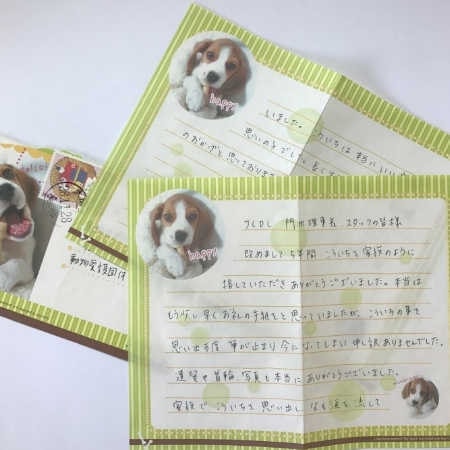 happy
しました。
思いの子でした。
のおかげと思っております
28
動物愛護団体
happy
スタッフの皆様
改めまして5年間 こういちを家族のように
接していただき ありがとうございました。本当は
もう少し早くお礼の手紙をと思っていましたが、こういちの事を
思い出す度 筆が止まり 今になってしまい 申し訳ありませんでした。
遺骨や首輪、写真も本当に ありがとうございました。
家族で こういちを思い出し 涙を流して